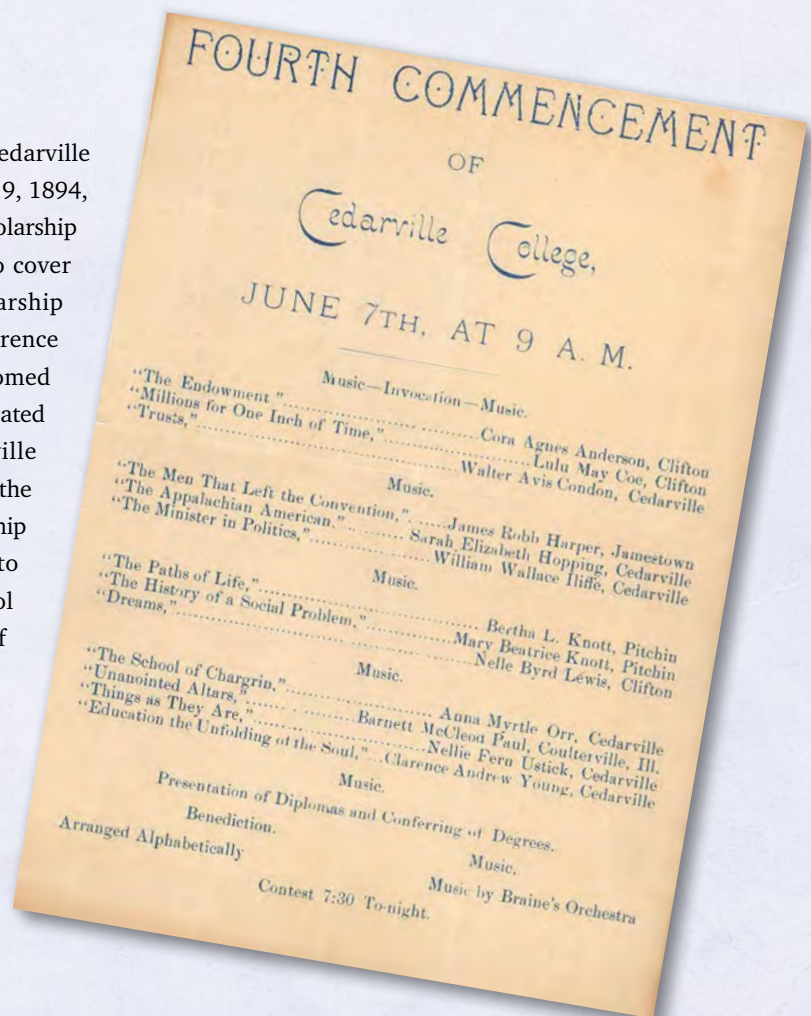 edarville
9, 1894,
olarship
o cover
arship
rence
omed
ated
ille
the
hip
to
ol
f
FOURTH COMMENCEMENT
OF
Cedarville College,
JUNE 7TH, AT 9 A. M.
Music—Invocation—Music.
"The Endowment"..........Cora Agnes Anderson, Clifton
"Millions for One Inch of Time,"..........Lulu May Coe, Clifton
"Trusts,"..........Walter Avis Condon, Cedarville
Music.
"The Men That Left the Convention,"......James Robb Harper, Jamestown
"The Appalachian American."..........Sarah Elizabeth Hopping, Cedarville
"The Minister in Politics,"..........William Wallace Iliffe, Cedarville
Music.
"The Paths of Life,"..........Bertha L. Knott, Pitchin
"The History of a Social Problem,"..........Mary Beatrice Knott, Pitchin
"Dreams,"..........Nelle Byrd Lewis, Clifton
Music.
"The School of Chargrin,"..........Anna Myrtle Orr, Cedarville
"Unanointed Altars,"..........Barnett McCleod Paul, Coulterville, Ill.
"Things as They Are,"..........Nellie Fern Ustick, Cedarville
"Education the Unfolding of the Soul,"...Clarence Andrew Young, Cedarville
Music.
Presentation of Diplomas and Conferring of Degrees.
Benediction. Music.
Arranged Alphabetically Music by Braine's Orchestra
Contest 7:30 To-night.